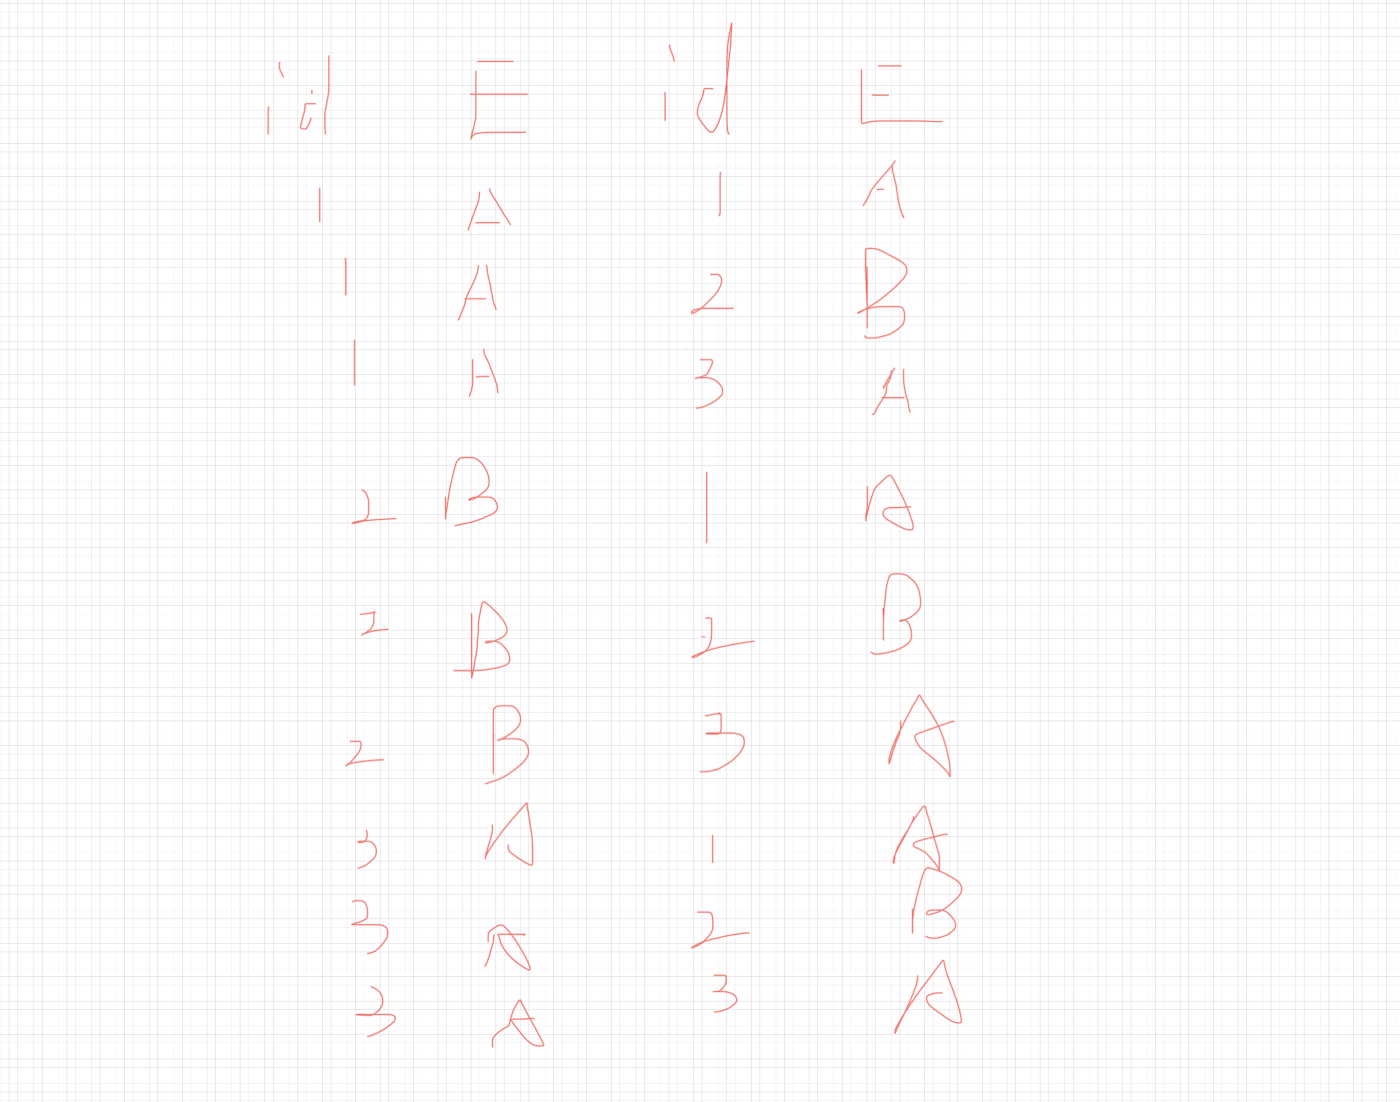 id E id E
1 A 1 A
1 A 2 B
1 A 3 A
2 B 1 A
2 B 2 B
2 B 3 A
3 A 1 A
3 A 2 B
3 A 3 A